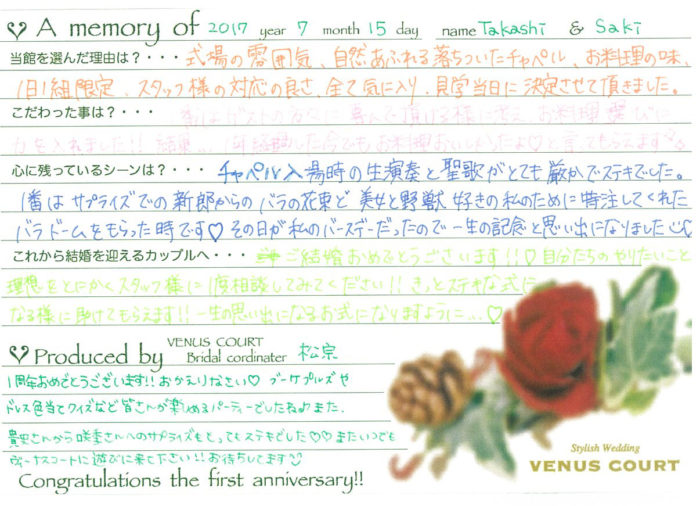 A memory of 2017 year 7 month 15 day name Takashi & Saki
当館を選んだ理由は？・・・式場の雰囲気、自然あふれる落ちついたチャペル、お料理の味、
1日1組限定、スタッフ様の対応の良さ、全て気に入り、見学当日に決定させて頂きました。
こだわった事は？・・・私はゲストの方々に喜んで頂ける様に考え、お料理選びに
力を入れました!! 結果... 1年経過した今でもお料理おいしかったよ♡と言てもらえます
心に残っているシーンは？・・・チャペル入場時の生演奏と聖歌がとても厳かでステキでした。
1番はサプライズでの新郎からのバラの花束と美女と野獣好きの私のために特注してくれた
バラドームをもらった時です♡その日が私のバースデーだったので一生の記念と思い出になりました
これから結婚を迎えるカップルへ・・・ご結婚おめでとうございます!!♡自分たちのやりたいこと
理想をとにかくスタッフ様に1度相談してみてください!!きっとステキな式に
なる様に助けてもらえます!!一生の思い出になるお式になりますように...♡
Produced by VENUS COURT Bridal cordinater 松宗
1周年おめでとうございます!!おかえりなさい♡ブーケプルズや
ドレス色当てクイズなど皆さんが楽しめるパーティーでしたねみまた、
貴史さんから咲季さんへのサプライズもとってもステキでした♡♡またいつでも
ヴィーナスコートに遊びに来て下さい!!お待ちしてます
Congratulations the first anniversary!!
Stylish Wedding
VENUS COURT